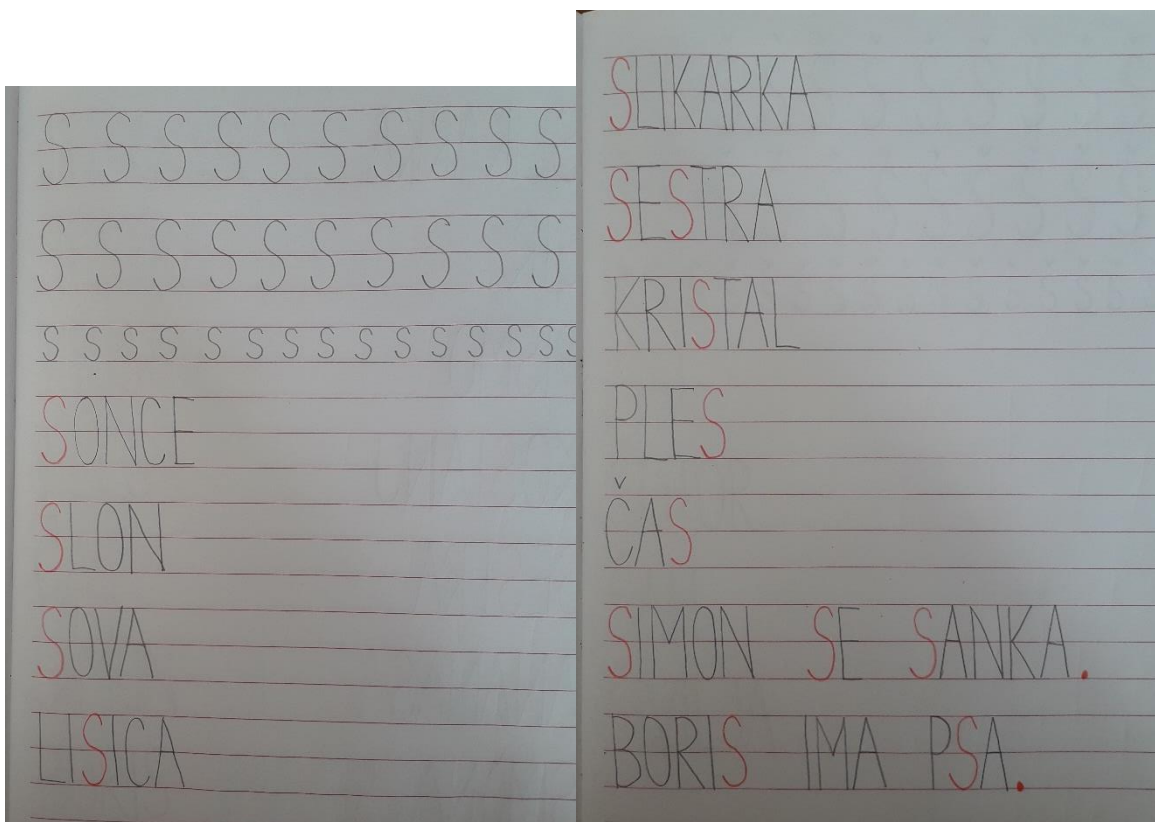 S S S S S S S S S S
S S S S S S S S S S
S S S S S S S S S S S S S S S
SONCE
SLON
SOVA
LISICA
SLIKARKA
SESTRA
KRISTAL
PLES
ČAS
SIMON SE SANKA.
BORIS IMA PSA.